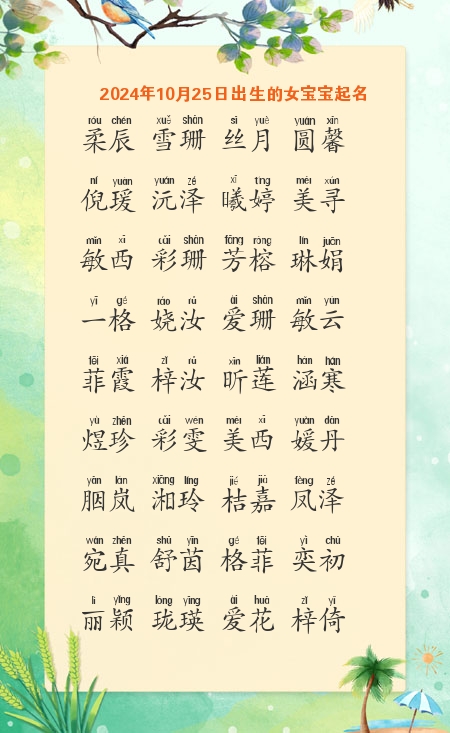 2024年10月25日出生的女宝宝起名
róu chén xuě shān sī yuè yuán xīn
柔辰 雪珊 丝月 圆馨
ní yuàn yuán zé xī tíng měi xún
倪瑗 沅泽 曦婷 美寻
mǐn xī cǎi shān fāng róng lín juān
敏西 彩珊 芳榕 琳娟
yī gé ráo rǔ ài shān mǐn yún
一格 娆汝 爱珊 敏云
fēi xiá zǐ rǔ xīn lián hán hán
菲霞 梓汝 昕莲 涵寒
yù zhēn cǎi wén měi xī yuàn dān
煜珍 彩雯 美西 媛丹
yān lán xiāng líng jié jiā fèng zé
胭岚 湘玲 桔嘉 凤泽
wǎn zhēn shū yīn gé fēi yì chū
宛真 舒茵 格菲 奕初
lì yǐng lóng yīng ài huā zǐ yǐ
丽颖 珑瑛 爱花 梓倚